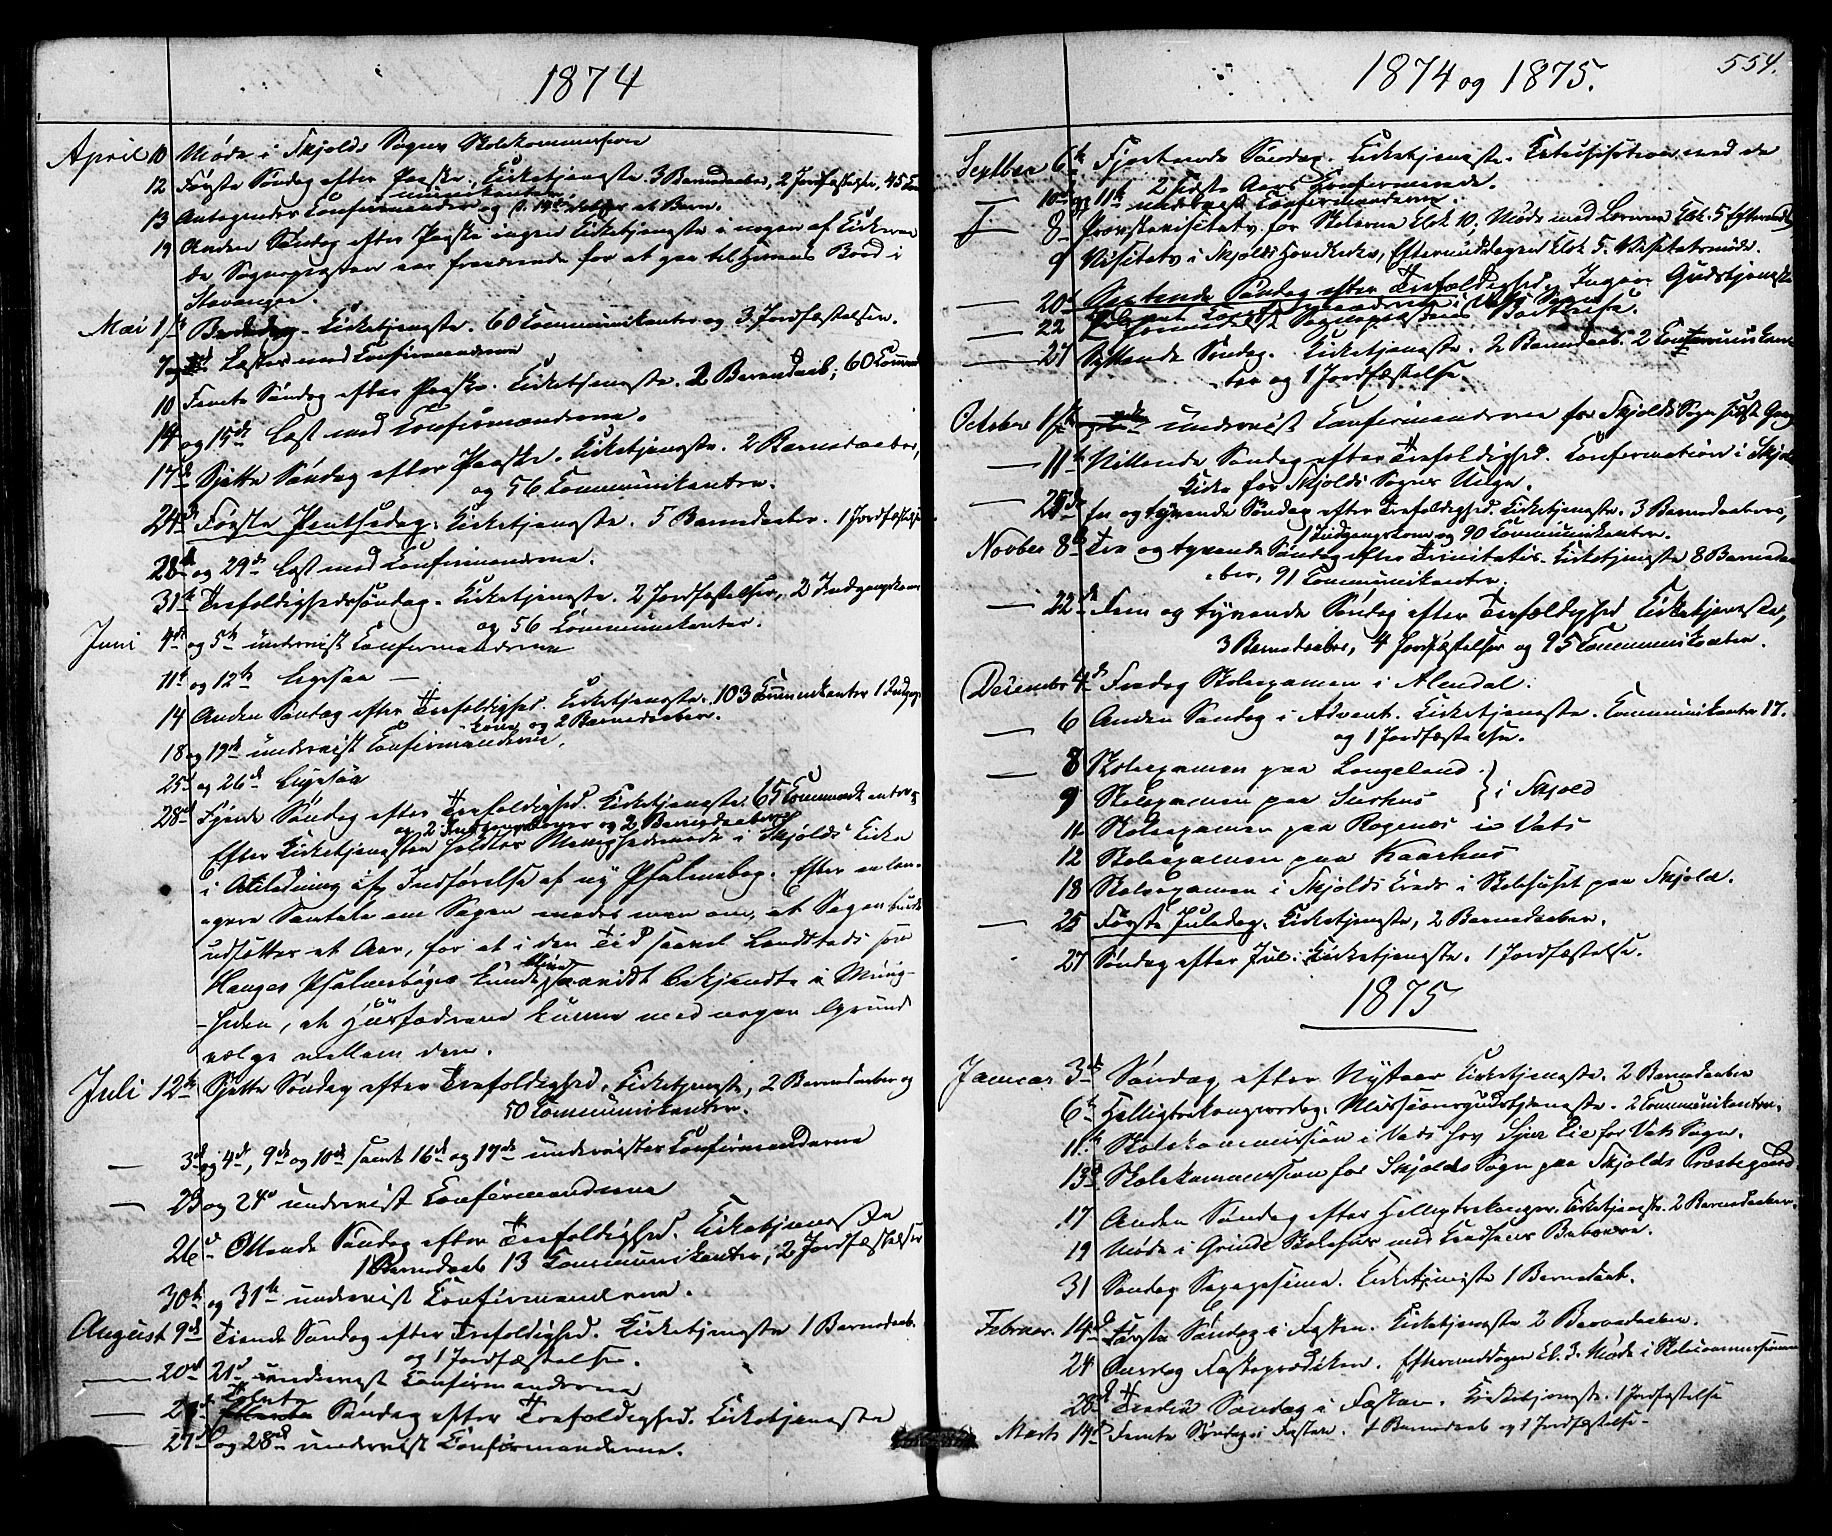 1874
April 10 Møde i Skjolds Sogns Skolekommission
12 Første Søndag efter Paaske. Kirketjeneste 3 Barnedaaber, 2 Jordfæstelser, 45 Com-
municanter
13 Antegnedes Confirmander og d. 14de døbtes et Barn.
19 Anden Søndag efter Paaske ingen Kirketjeneste i nogen af Kirkerne
da Sognepræsten var fraværende for at gaa til Herrens Bord i
Stavanger.
Mai 1ste Bededag. Kirketjeneste. 60 Communikanter og 3 Jordfæstelser.
7 og Læstes med Confirmanderne
10 Femte Søndag efter Paaske. Kirketjeneste. 2 Barnedaab; 60 Commun
14 og 15de Læst med Confirmanderne.
17de Sjette Søndag efter Paaske. Kirketjeneste. 2 Barnedaaber,
og 56 Communikanter.
24de Første Pintsedag. Kirketjeneste. 5 Barnedaaber. 1 Jordfæstelse
28de og 29de Læst med Confirmanderne.
31te Trefoldighedssøndag. Kirketjeneste. 2 Jordfæstelser, 2 Indgangskoner
og 56 Communikanter.
Juni 4de og 5te undervist Confirmanderne
11te og 12te Ligesaa —
14 Anden Søndag efter Trefoldighed. Kirketjeneste. 103 Communikanter 1 Indgangs-
kone og 2 Barnedaaber.
18 og 19de undervist Confirmanderne.
25de og 26de Ligesaa
28de Fjerde Søndag efter Trefoldighed. Kirketjeneste. 65 Communikanter
og 2 Indgangskoner og 2 Barnedaaber
Efter Kirketjenesten holdtes Menighedsmøde i Skjolds Kirke
i Anledning af Indførelse af ny Psalmebog. Efter en læn-
gere Samtale om Sagen enedes man om, at Sagen burde
udsættes et Aar, for at i den Tid saavel Landstads som
Hauges Psalmebøger kunde blive saavidt bekjendte i Menig-
heden, at Husfædrene kunne med nogen Grund
vælge mellem dem.
Juli 12te Sjette Søndag efter Trefoldighed. Kirketjeneste, 2 Barnedaaber og
50 Communikanter.
— 3de og 4de, 9de og 10de samt 16de og 17de undervistes Confirmanderne
— 23 og 24de undervist Confirmanderne
26de Ottende Søndag efter Trefoldighed. Kirketjeneste
1 Barnedaab 13 Communikanter, 2 Jordfæstelser
30te og 31te undervist Confirmanderne.
August 9de Tiende Søndag efter Trefoldighed. Kirketjeneste 1 Barnedaab.
og 1 Jordfæstelse.
— 20de 21de undervist Confirmanderne
Tolvte
— Søndag efter Trefoldighed. Kirketjeneste
— 27de og 28de undervist Confirmanderne.
1874 og 1875.
554.
Septber 6te Fjortende Søndag. Kirketjeneste. Catechisation med de
2 sidste Aars Confirmerede.
— 10de og 11te undervist Confirmanderne.
8 Provstevisitats for Skolerne Klok 10; Møde med Lærerne Klk. 5 Efterm
9 Visitats i Skjolds Hovedkirke, Eftermiddagen Klok 5. Visitatsmøde.
— 20de Sextende Søndag efter Trefoldighed. Ingen Gudstjeneste
— 22
— 27 Syttende Søndag. Kirketjeneste. 2 Barnedaab. 2 Communikan-
ter og 1 Jordfæstelse.
October 1ste undervist Confirmanderne for Skjolds Sogn sidste Gang
— 11te Nittende Søndag efter Trefoldighed. Confirmation i Skjold
Kirke for Skjolds Sogns Unge.
— 25de En og tyvende Søndag efter Trefoldighed. Kirketjeneste. 3 Barnedaaber,
1 Indgangskone og 90 Communikanter.
Novber 8de Tre og tyvende Søndag efter Trinitatis. Kirketjeneste 8 Barneda-
aber, 91 Communikanter.
— 22de Fem og tyvende Søndag efter Trefoldighed Kirketjeneste,
3 Barnedaaber, 4 Jordfæstelser og 95 Communikanter.
December 4de Fredag Skoleexamen i Alendal.
— 6 Anden Søndag i Advent. Kirketjeneste. Communikanter 17.
og 1 Jordfæstelse.
— 8 Skoleexamen paa Langeland
9 Skoleexamen paa } i Skjold
11 Skoleexamen paa Ragenæs i Vats
12 Skoleexamen paa Kaarhus
18 Skoleexamen i Skjolds Kreds i Skolehuset paa Skjold.
— 25 Første Juledag. Kirketjeneste, 2 Barnedaaber.
27 Søndag efter Jul. Kirketjeneste. 1 Jordfæstelse.
1875
Januar 3de Søndag efter Nytaar Kirketjeneste. 2 Barnedaaber
6te Helligtrekongersdag. Missionsgudstjeneste. 2 Communikanter.
11te Skolekommission i Vats hos Sjur Lie for Vats Sogn.
13de Skolekommission for Skjolds Sogn paa Skjolds Præstegaard
17 Anden Søndag efter Helligtrekonger. Kirketjeneste. 2 Barnedaaber.
19 Møde i Grinde Skolehus med Kredsens Beboere.
31 Søndag Sexagesima. Kirketjeneste 1 Barnedaab.
Februar. 14de Første Søndag i Fasten. Kirketjeneste 2 Barnedaaber.
24 Onsdag Fasteprædiken. Eftermiddagen Kl. 3. Møde i Skolecommissionen
28de Tredie Søndag i Fasten. Kirketjeneste. 1 Jordfæstelse
Marts 14de Femte Søndag i Fasten. 1 Barnedaab og 1 Jordfæstelse.